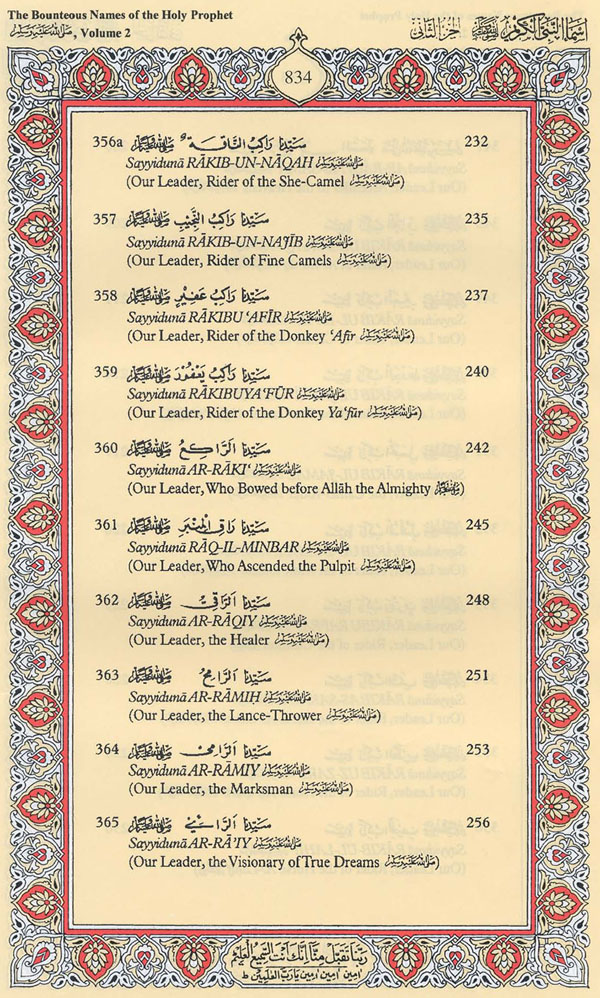 The Bounteous Names of the Holy Prophet
ﷺ, Volume 2
اسماء النبي الكريم ﷺ الجزء الثاني
834
356a سَيِّدُنَا رَاكِبُ النَّاقَةِ ﷺ 232
Sayyidunā RĀKIB-UN-NĀQAH ﷺ
(Our Leader, Rider of the She-Camel ﷺ)
357 سَيِّدُنَا رَاكِبُ النَّجِيْبِ ﷺ 235
Sayyidunā RĀKIB-UN-NAJĪB ﷺ
(Our Leader, Rider of Fine Camels ﷺ)
358 سَيِّدُنَا رَاكِبُ عَفِيْرٍ ﷺ 237
Sayyidunā RĀKIBU ‘AFĪR ﷺ
(Our Leader, Rider of the Donkey ‘Afīr ﷺ)
359 سَيِّدُنَا رَاكِبُ يَعْفُوْرَ ﷺ 240
Sayyidunā RĀKIBUYA‘FŪR ﷺ
(Our Leader, Rider of the Donkey Ya‘fūr ﷺ)
360 سَيِّدُنَا اَلرَّاكِعُ ﷺ 242
Sayyidunā AR-RĀKI‘ ﷺ
(Our Leader, Who Bowed before Allāh the Almighty ﷺ)
361 سَيِّدُنَا رَاقِ الْمِنْبَرِ ﷺ 245
Sayyidunā RĀQ-IL-MINBAR ﷺ
(Our Leader, Who Ascended the Pulpit ﷺ)
362 سَيِّدُنَا اَلرَّاقِيْ ﷺ 248
Sayyidunā AR-RĀQIY ﷺ
(Our Leader, the Healer ﷺ)
363 سَيِّدُنَا اَلرَّامِحُ ﷺ 251
Sayyidunā AR-RĀMIḤ ﷺ
(Our Leader, the Lance-Thrower ﷺ)
364 سَيِّدُنَا اَلرَّامِيْ ﷺ 253
Sayyidunā AR-RĀMIY ﷺ
(Our Leader, the Marksman ﷺ)
365 سَيِّدُنَا اَلرَّائِيْ ﷺ 256
Sayyidunā AR-RĀ’IY ﷺ
(Our Leader, the Visionary of True Dreams ﷺ)
رَبَّنَا تَقَبَّلْ مِنَّا اِنَّكَ اَنْتَ السَّمِيْعُ الْعَلِيْمُ
اٰمين اٰمين اٰمين يَارَبَّ الْعٰلَمِيْنَ ط